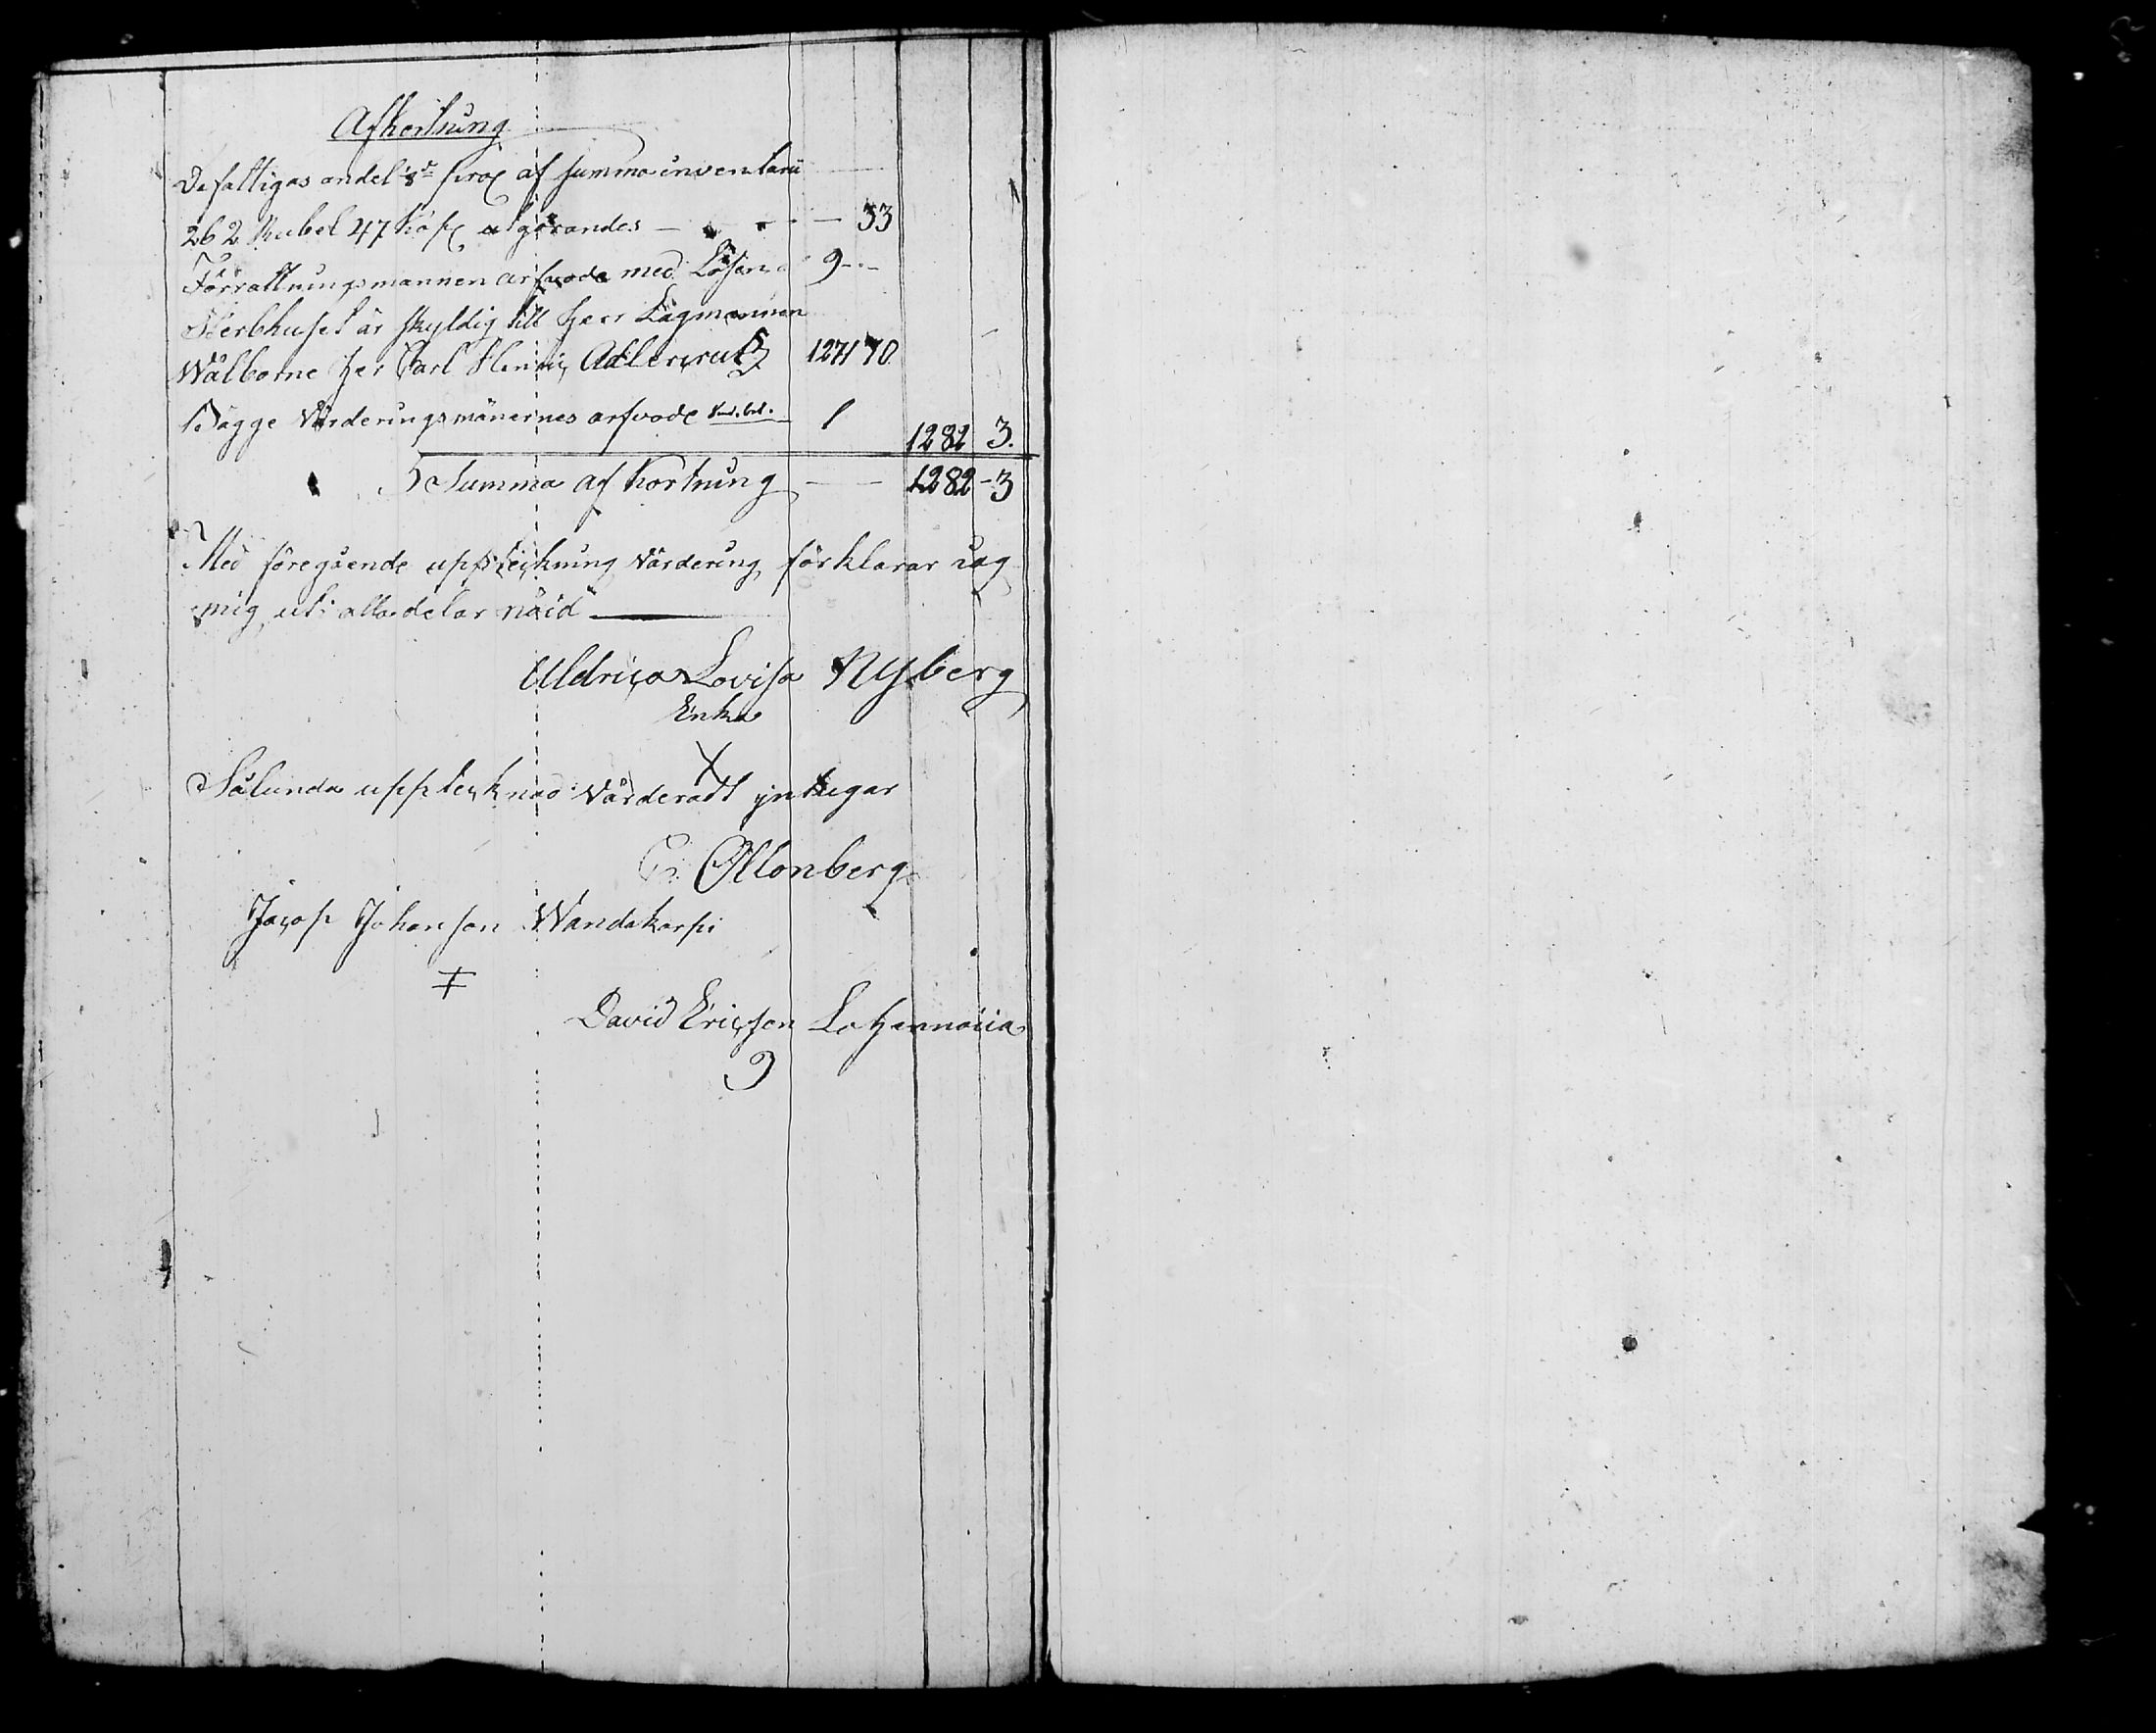 Afkortning
De fattigas andel 8de proc af summa inventarii
262 Rubel 47 Kop utgörandes — — — 33
Förrattningsmannen arfvode med Lösen 9 --
Sterbhuset är skyldig till Herr Lagmannen
Wälborne Her Carl Henric Adlercrutz 1271 70
Bägge Värderingsmänernes arfvode 1 1282 3.
Summa af kortning — — 1282 - 3
Med föregående uppteckning Värdering förklarar iag
mig uti alla delar nöid
Uldrica Lovisa Nyberg
Enka
X
Sålunda upptecknad Värderadt intygar
Ollonberg
Jacop Johansson Wandakarpi
David Ericsson